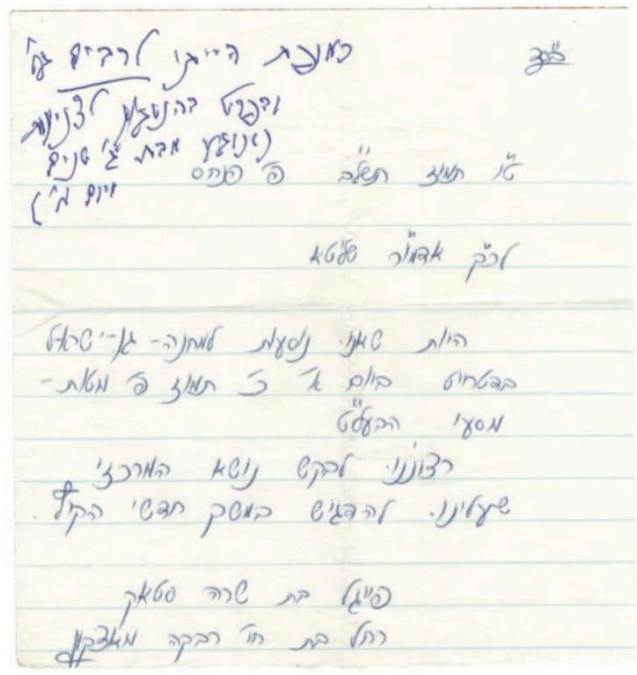 בס"ד
כמופת הייתי לרבים גו'
ובפרט בהנוגע לצניעות
(שנוגע מבת ג' שנים
ויום א')
ט"ו תמוז תשל"ב פ' פנחס
לכ"ק אדמו"ר שליט"א
היות שאנו נוסעות למחנה - גן-ישראל
בדטרויט ביום א' כ' תמוז פ' מטות-
מסעי הבעל"ט
רצוננו לבקש נושא המרכזי
שעלינו להדגיש במשך חדשי הקיץ.
פייגל בת שרה סטאק
רחל בת חי' רבקה מאצקין